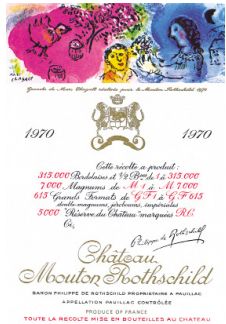 chagall
Dessin de Marc Chagall réalisé pour le Mouton Rothschild 1970
1970 1970
Cette récolte a produit :
313.000 Bordelaises et ½ Bses de 1 à 313.000
7000 Magnums de M 1 à M 7000
613 Grands Formats de GF 1 à GF 613
double-magnums, jéroboams, impériales
5000 "Réserve du Château" marquées R.C.
Ci,
Philippe de Rothschild
Château
Mouton Rothschild
BARON PHILIPPE DE ROTHSCHILD PROPRIETAIRE A PAUILLAC
APPELLATION PAUILLAC CONTRÔLÉE
PRODUCE OF FRANCE
TOUTE LA RECOLTE MISE EN BOUTEILLES AU CHATEAU